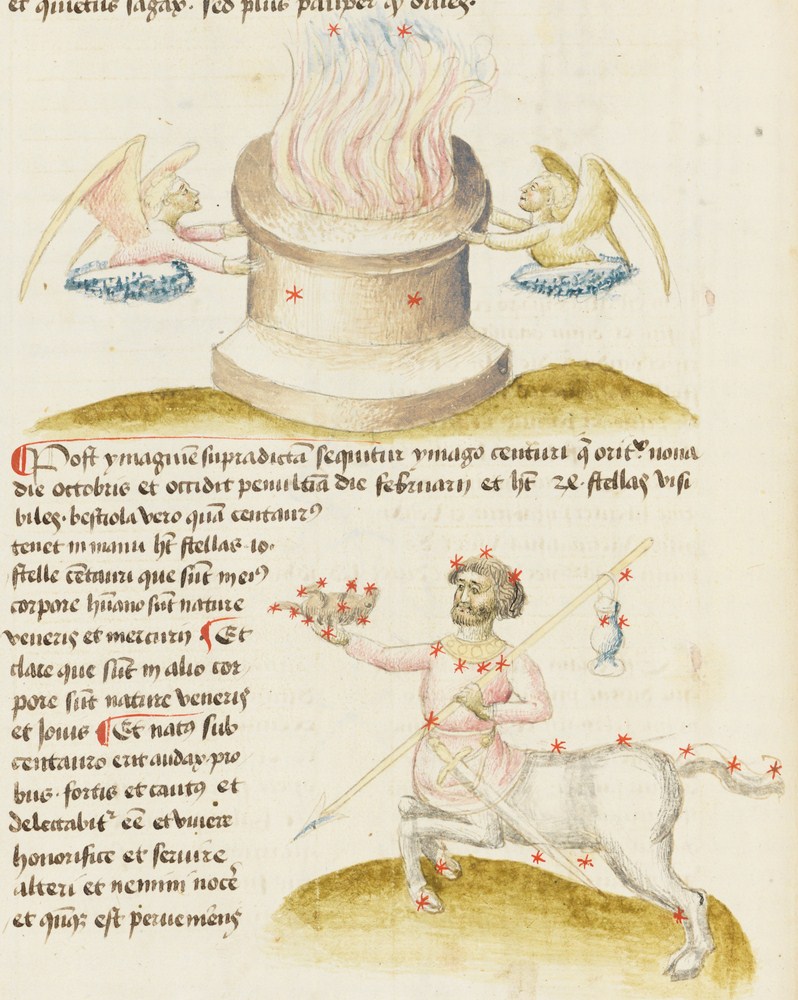 et quietus sagax. sed plus pauper ꝙ diues.
Post ymaginē supradictā sequitur ymago centuri q̄ orit᷑ nona
die octobris et occidit penultīa die februarij et hēt 28 stellas visi
biles. bestiola vero quā centaurꝯ
tenet in manu hēt stellas .10.
stelle cētauri que sūt in eiꝯ
corpore hūano sūt nature
veneris et mercurij Et
clare que sūt in alio cor
pore sūt nature veneris
et Jouis Et natꝯ sub
centauro erit audax. pro
bus. fortis et cautꝯ et
delectabit᷑ eē et viuere
honorifice et seruire
alteri et nemini nocē
et est perueniens